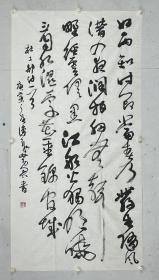 好雨知时节当春乃发生随风
潜入夜润物细无声
野径云俱黑江船火独明晓
看红湿处花重锦官城
杜工部诗一首
庚寅之年
书